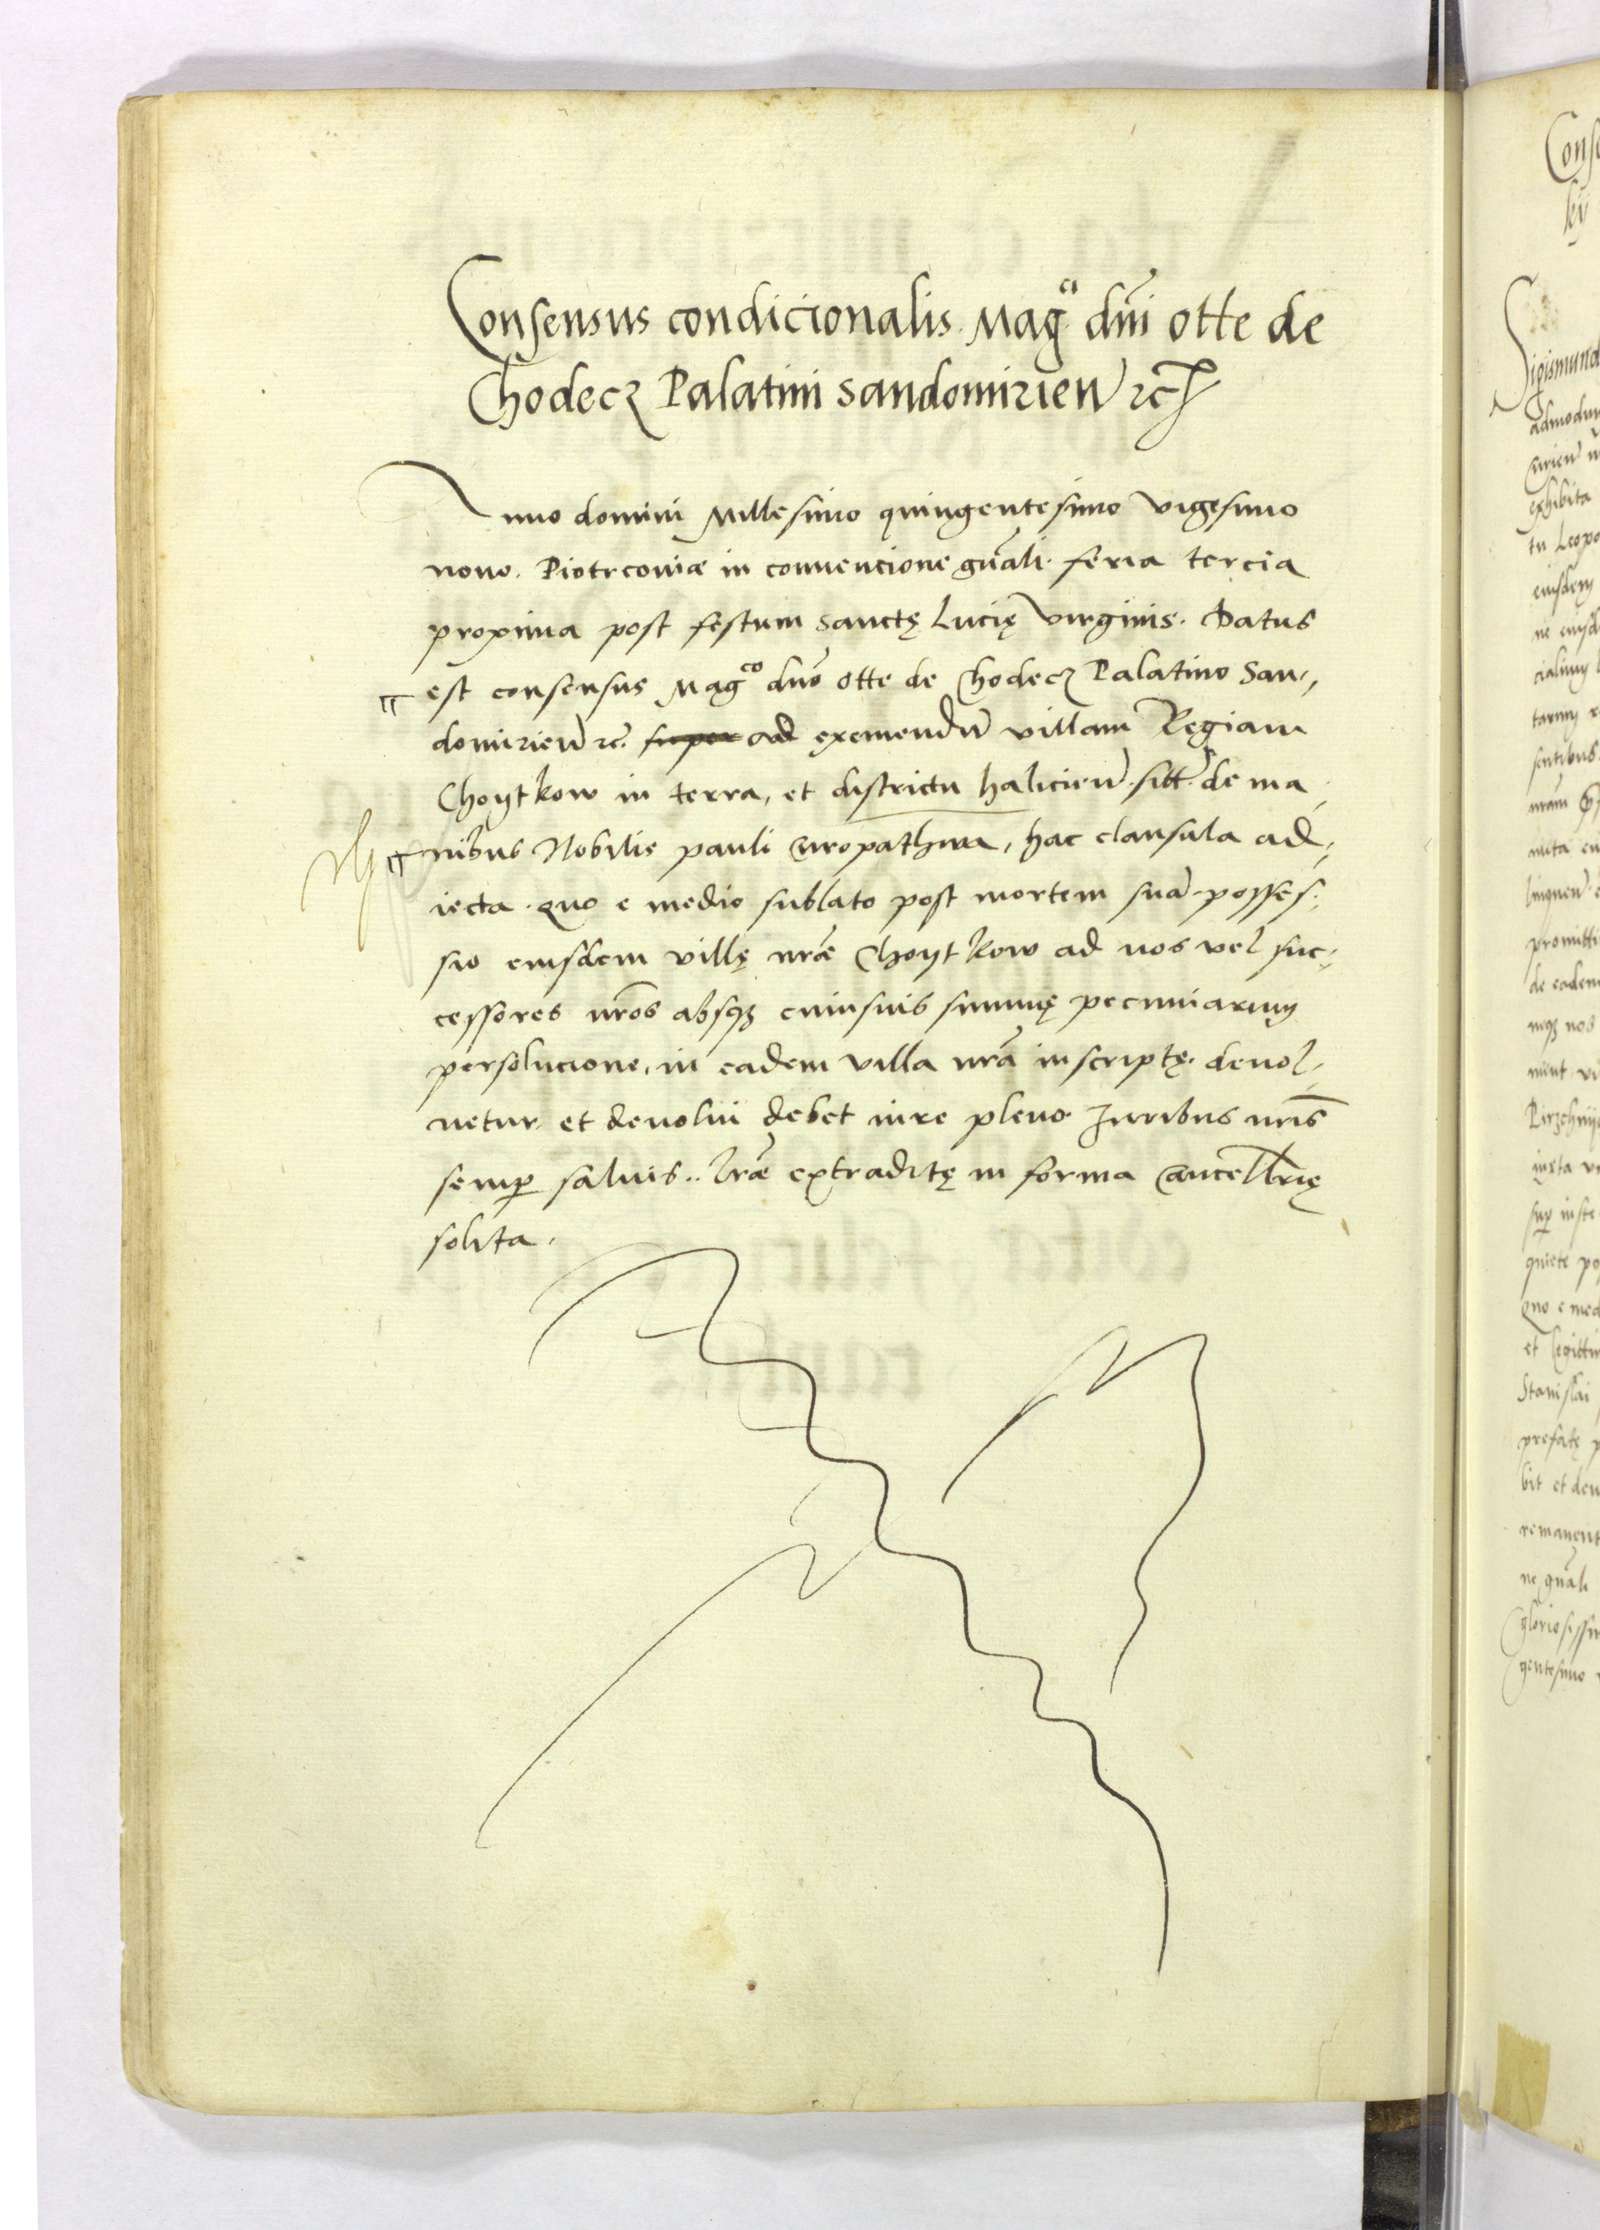 Consensus condicionalis Mag^ci dni Otte de
Chodecz Palatini Sandomirien rc
Anno domini Millesimo quingentesimo vigesimo
nono. Piotrconiæ in conuencione gnali. feria tercia
proxima post festum Sanctę Lucię virginis. Datus
est consensus Mag^co dno Otte de Chodecz Palatino San,,
domirien rc. super ad exemendu villam Regiam
Choytkow in terra, et districtu halicien. sitt. de ma
nibus Nobilis pauli Cropathwa, hac clausula ad,,
iecta. quo e medio sublato post mortem sua posses,,
sio eiusdem villę nræ Choytkow ad nos vel suc,,
cessores nros absqz cuiusuis summę pecuniarum
persolucione, in eadem villa nra inscriptę. deuol,,
uetur, et deuolui debet iure pleno Iuribus nris
semp saluis.. Lræ extraditę in forma Cancellrię
solita.
Conse
kij
Sigismund
admodum
exhibita
tu Leopo
eiusdem
sentibus
nram
promitti
de eadem
nqz nos
quiete po
Quo e med
et legittim
Stanislai
prefatę p
bit et deu
remanent
ne gnali
gloriosissim
gentesimo